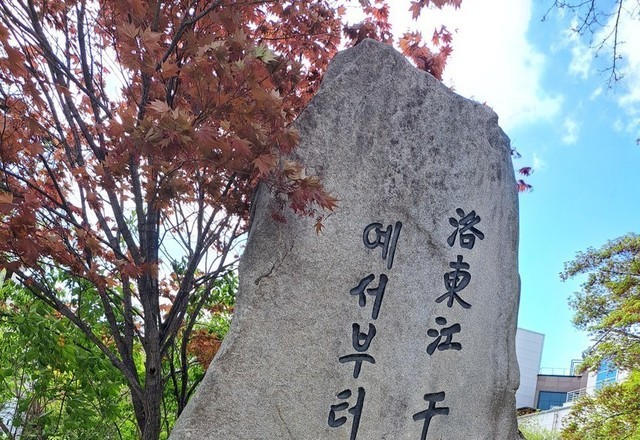 洛東江 千
예서부터